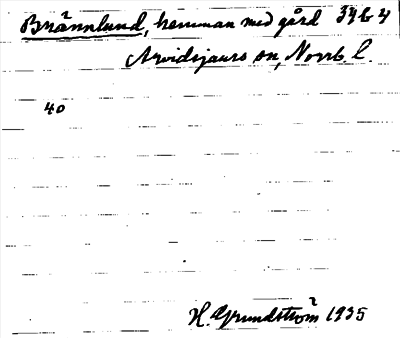 Brännlund, hemman med gård 34b4
Arvidsjaurs sn, Norrb. l.
40
H. Grundström 1935